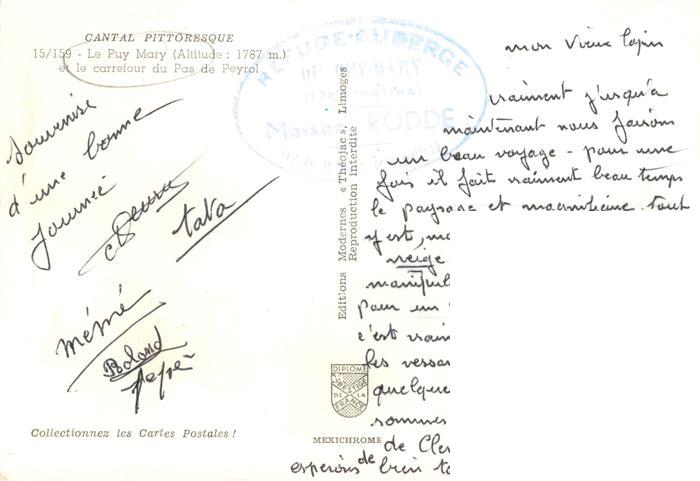 CANTAL PITTORESQUE
15/159 - Le Puy Mary (Altitude : 1787 m.)
et le carrefour du Pas de Peyrol
REFUGE-AUBERGE
DU PUY-MARY
RODDE
souvenir
d'une bonne
journée
tata
mémé
Roland
pépé
Collectionnez les Cartes Postales !
Editions Modernes « Théojac », Limoges
Reproduction Interdite
DIPLOME
PRESTIGE
DE LA
FRANCE
MEXICHROME
mon vieux lapin
vraiment jusqu'a
maintenant nous faisons
un beau voyage - pour une
fois il fait vraiment beau temps
le paysage et magnifique tout
y est,
neige
manipul
pour un
c'est vrai
les
quelque
sommes
de Cle
esperons de bien